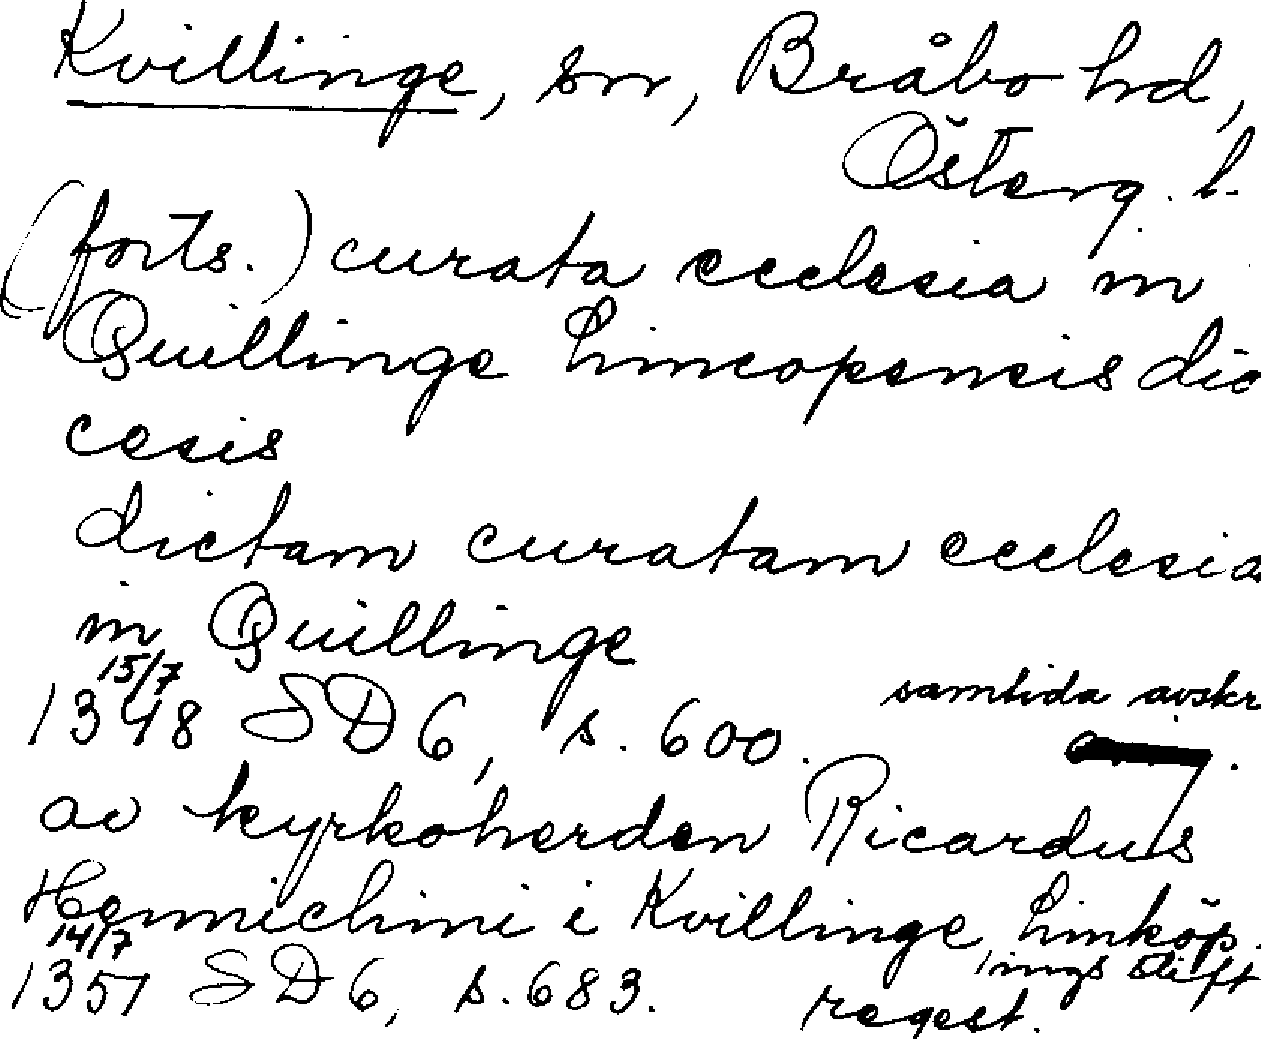 Kvillinge, sn, Bråbo hd,
Österg. l.
(forts.) curata ecclesia in
Quillinge Lincopensis dio
cesis
dictam curatam ecclesia
in Quillinge
15/7
1348 SD 6, s. 600. samtida avskr
av kyrkoherden Ricardus
Hennichini i Kvillinge, Linköp.
ings stift
14/7
1351 SD 6, s. 683. regest.